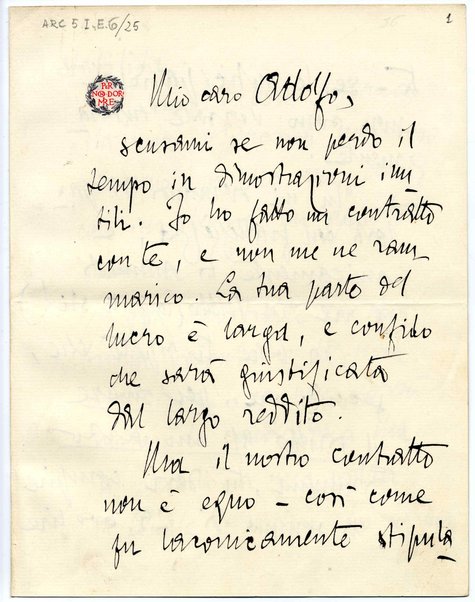 ARC 5 I.E.6/25
1
PER
NON DOR
MIRE
Mio caro Adolfo,
scusami se non perdo il
tempo in dimostrazioni inu
tili. Io ho fatto un contratto
con te, e non me ne ram
marico. La tua parte del
lucro è larga, e confido
che sarà giustificata
dal largo reddito.
Ma il nostro contratto
non è equo – così come
fu laconicamente stipula